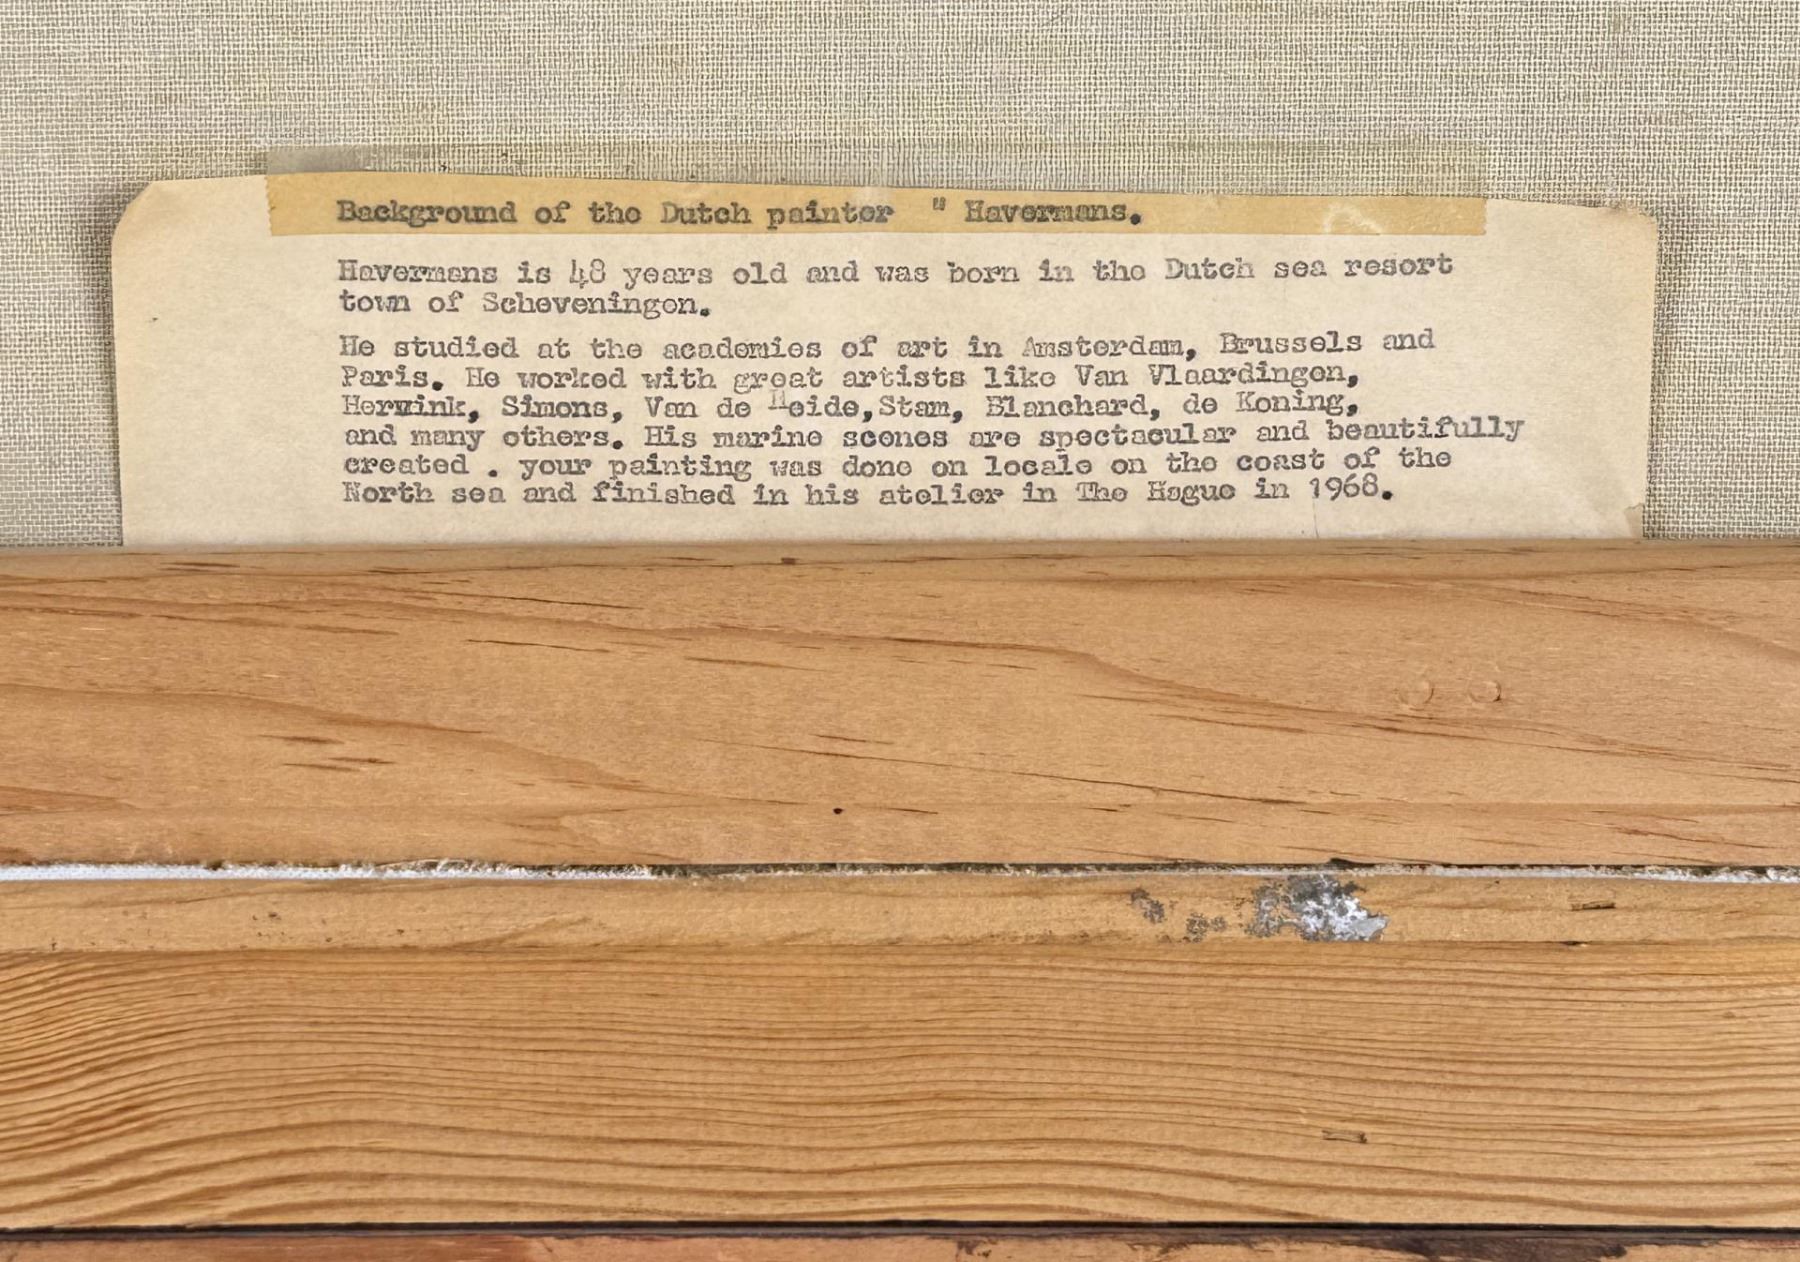 Background of the Dutch painter " Havermans.
Havermans is 48 years old and was born in the Dutch sea resort
town of Scheveningen.
He studied at the academies of art in Amsterdam, Brussels and
Paris. He worked with great artists like Van Vlaardingen,
Hermink, Simons, Van de Heide,Stam, Blanchard, de Koning,
and many others. His marine scenes are spectacular and beautifully
created . your painting was done on locale on the coast of the
North sea and finished in his atelier in The Hague in 1968.